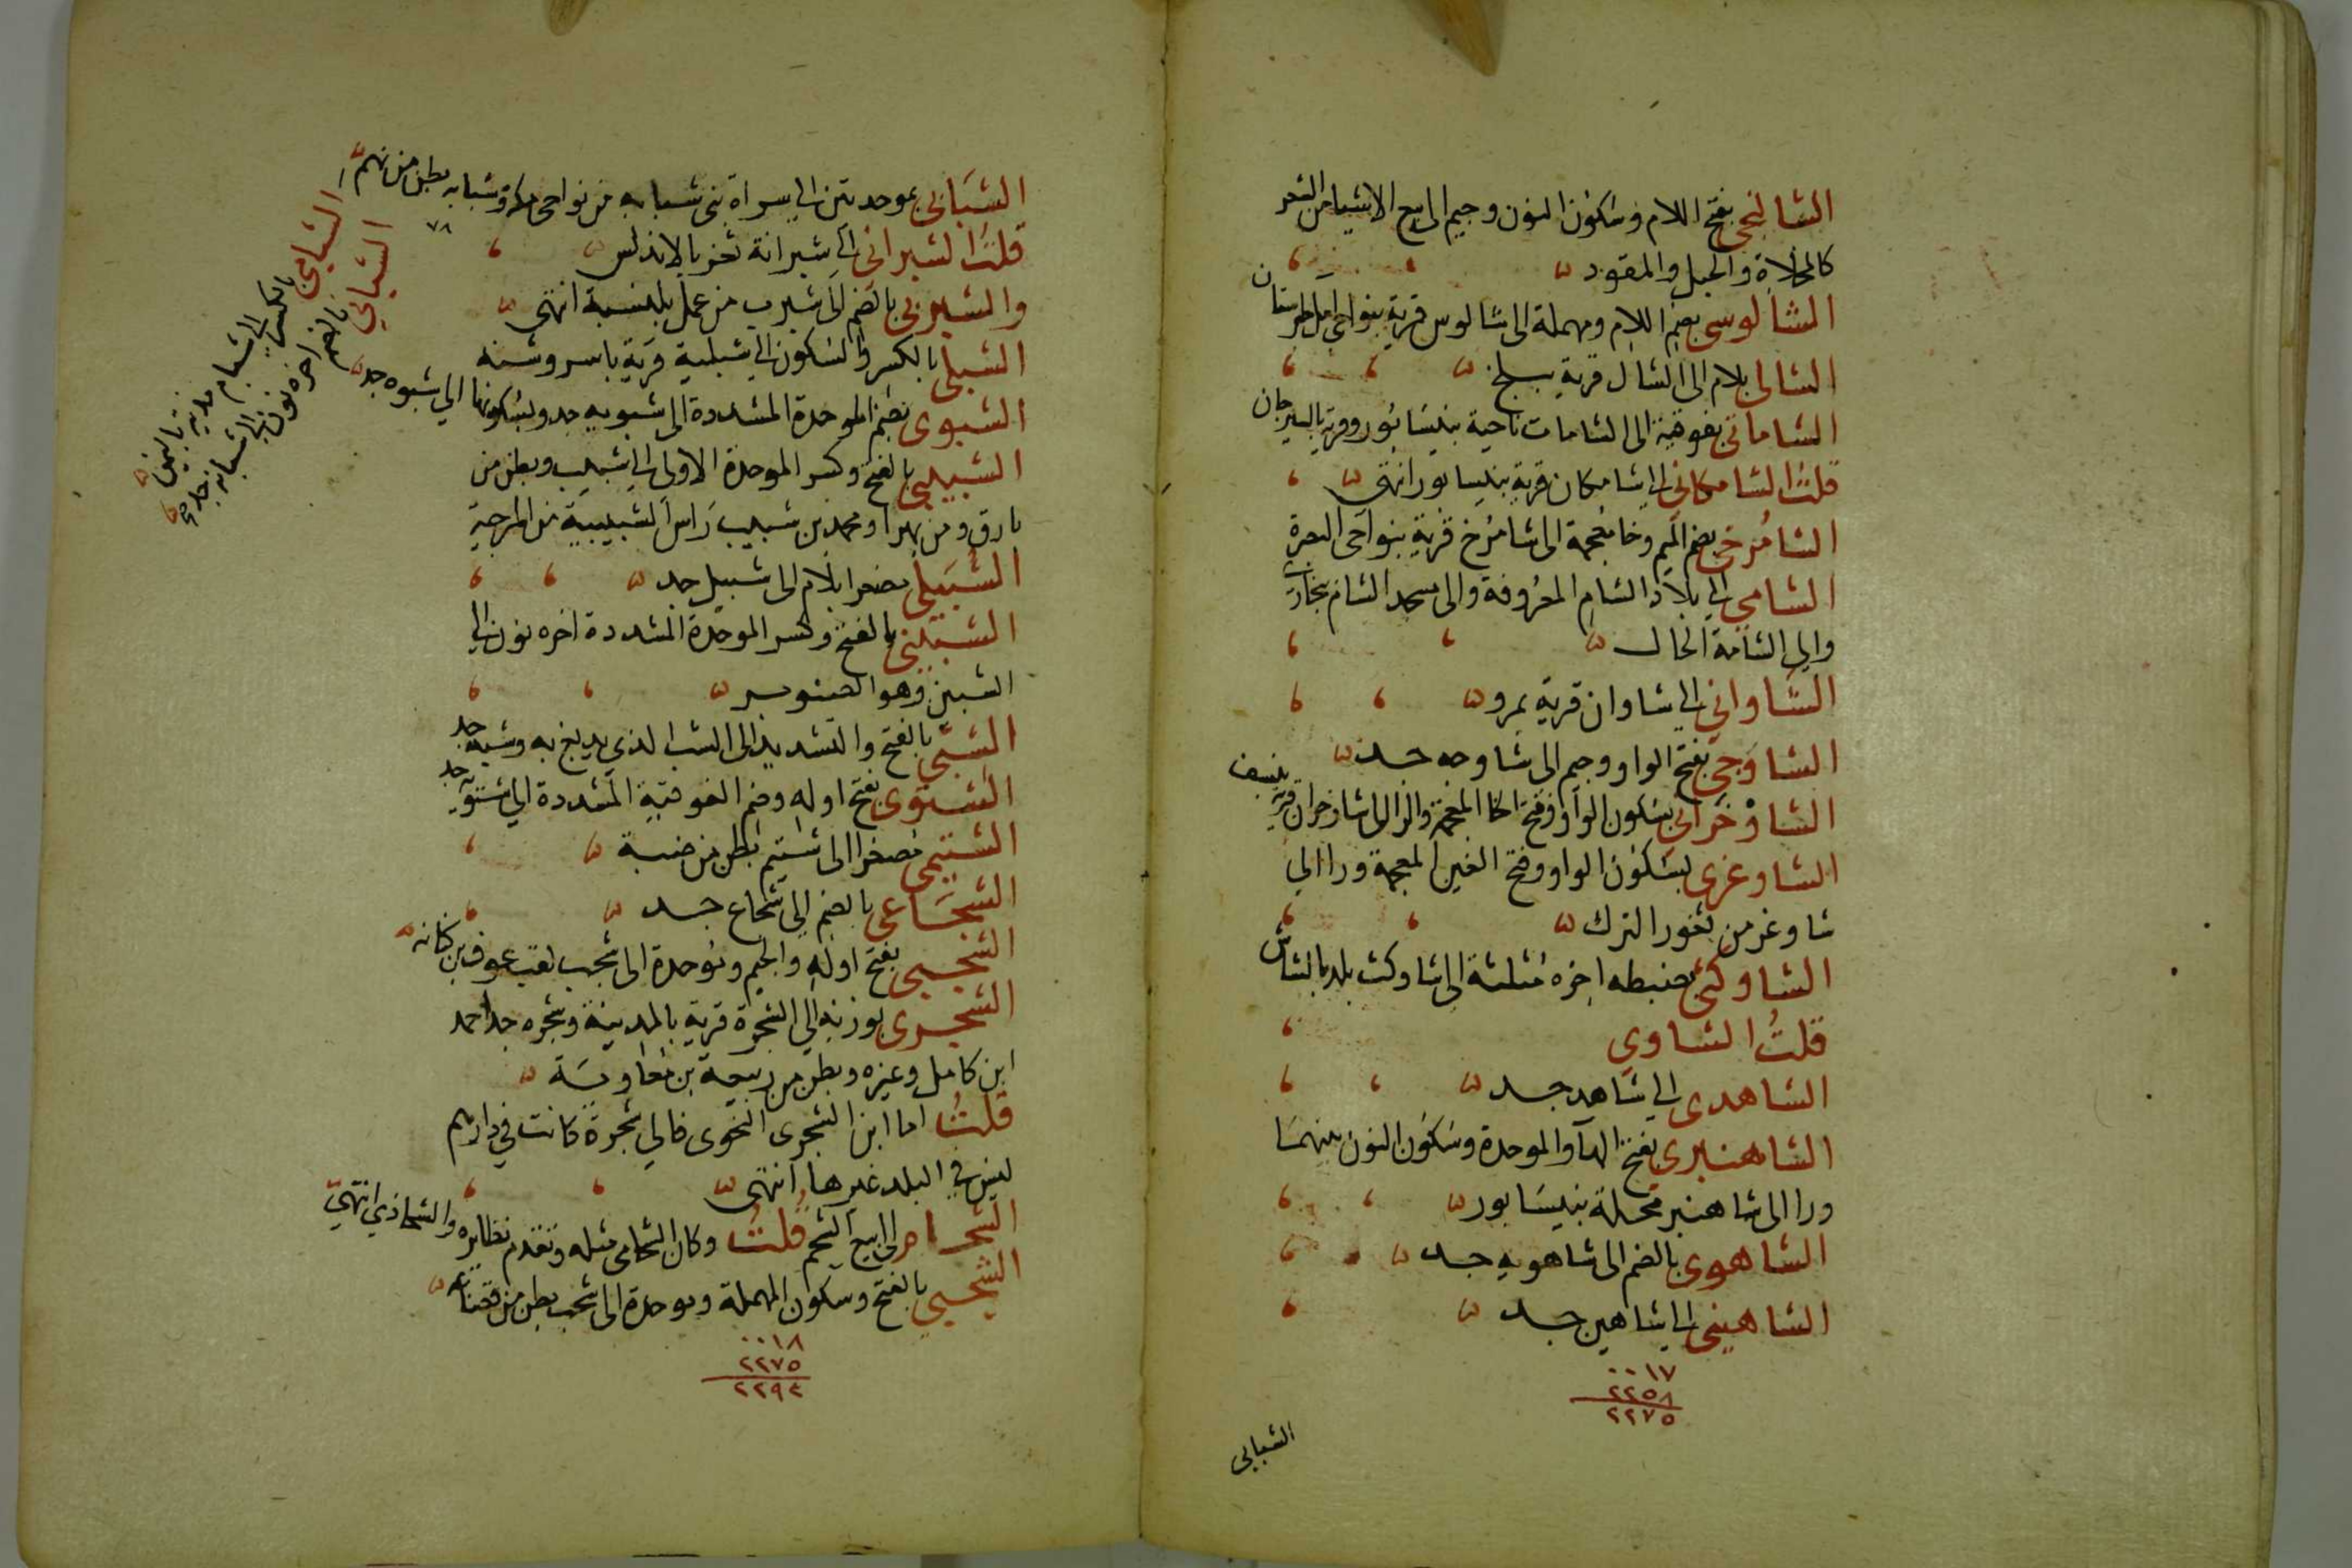 الشالنجي بفتح اللام وسكون النون وجيم الى بيع الاشيا من الشعر
كالمخلاة والحبل والمقود
الشالوسي بضم اللام ومهملة الى شالوس قرية بنواحي امل طبرستان
الشالي بلام الى الشال قرية ببلخ
الشاماتي بفوقية الى الشامات ناحية بنيسابور وقرية بالسيرجان
قلت الشامكاني الى شامكان قرية بنيسابور انتهى
الشامرخي بضم الميم وخا معجمة الى شامرخ قرية بنواحي البصرة
الشامي الى بلاد الشام المعروفة والى مسجد الشام ببخارى
والى الشامة الخال
الشاواني الى شاوان قرية بمرو
الشاوجي بفتح الواو وجيم الى شاوجه جد
الشاوخراني بسكون الواو وفتح الخا المعجمة والرا الى شاوخران قرية بنسف
الشاوغزي بسكون الواو وفتح الغين المعجمة ورا الى
شاوغر من ثغور الترك
الشاوكثي بضبطه اخره مثلثة الى شاوكث بلد بالشاش
قلت الشاوي
الشاهدي الى شاهد جد
الشاهنبري بفتح الها والموحدة وسكون النون بينهما
ورا الى شاهنبر محلة بنيسابور
الشاهوي بالضم الى شاهويه جد
الشاهيني الى شاهين جد
٠٠١٧
٢٢٥٨
٢٢٧٥
الشبابي
الشبابي بموحدتين الى سراة بني شبابه من نواحي مكة وشبابه بطن من فهم
٧٨
قلت الشبراني الى شبرانة ثغر بالاندلس
والشبربي بالضم الى شبرب من عمل بلنسية انتهى
الشبلي بالكسر والسكون الى شبلية قرية باسروشنه
الشبوي بضم الموحدة المشددة الى شبويه جد وبسكونها الى شبوه جد
الشبيبي بالفتح وكسر الموحدة الاولى الى شبيب وبطن من
بارق ومن بهرا ومحمد بن شبيب راس الشبيبية من المرجية
الشبيلي مصغرا بلام الى شبيل جد
الشبيني بالفتح وكسر الموحدة المشددة اخره نون الى
الشبين وهو الصنوبر
الشبي بالفتح والتشديد الى الشب الذي يدبغ به وشبة جد
الشتوي بفتح اوله وضم الفوقية المشددة الى شتويه جد
الشتيمي مصغرا الى شتيم بطن من ضبة
الشجاعي بالضم الى شجاع جد
الشجبي بفتح اوله والجيم وموحدة الى شجب لقب عوف بن كنانه
الشجري بوزنه الى الشجرة قرية بالمدينة وشجره جد احمد
ابن كامل وغيره وبطن من ربيعة بن معاوية
قلت اما ابن الشجري النحوي فالى شجرة كانت في دارهم
ليس في البلد غيرها انتهى
الشحام الى بيع الشحم قلت وكان الشحامي مثله وتقدم نظايره والشحاذي انتهى
الشحبي بالفتح وسكون المهملة وموحدة الى شحب بطن من قضاعه
٠٠١٨
٢٢٧٥
٢٢٩٤
الشبامي بالكسر الى شبام مدينة باليمن
الشباني بالضم اخره نون الى شبانه جد